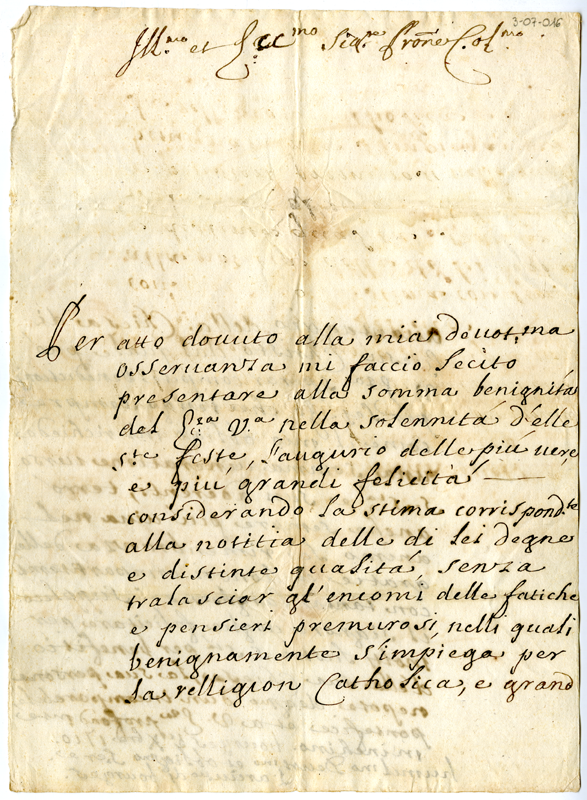 3-07-016
Ill.mo et Ecc.mo Sig.re Prone C. ol.mo
Per atto douuto alla mia deuot.ma
osseruanza mi faccio lecito
presentare alla somma benignità
del Ecc.za V.a nella solennità d'elle
s.te feste, l'augurio delle più uere,
e più grandi felicità
considerando la stima corrispond.te
alla notitia delle di lei degne
e distinte qualità, senza
tralasciar gl'encomi delle fatiche
e pensieri premurosi, nelli quali
benignamente s'impiega per
la relligion Catholica, e grand